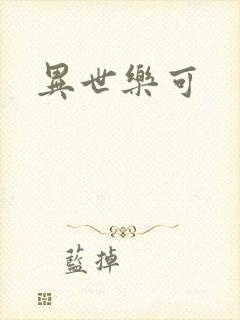 異世樂可
藍掉